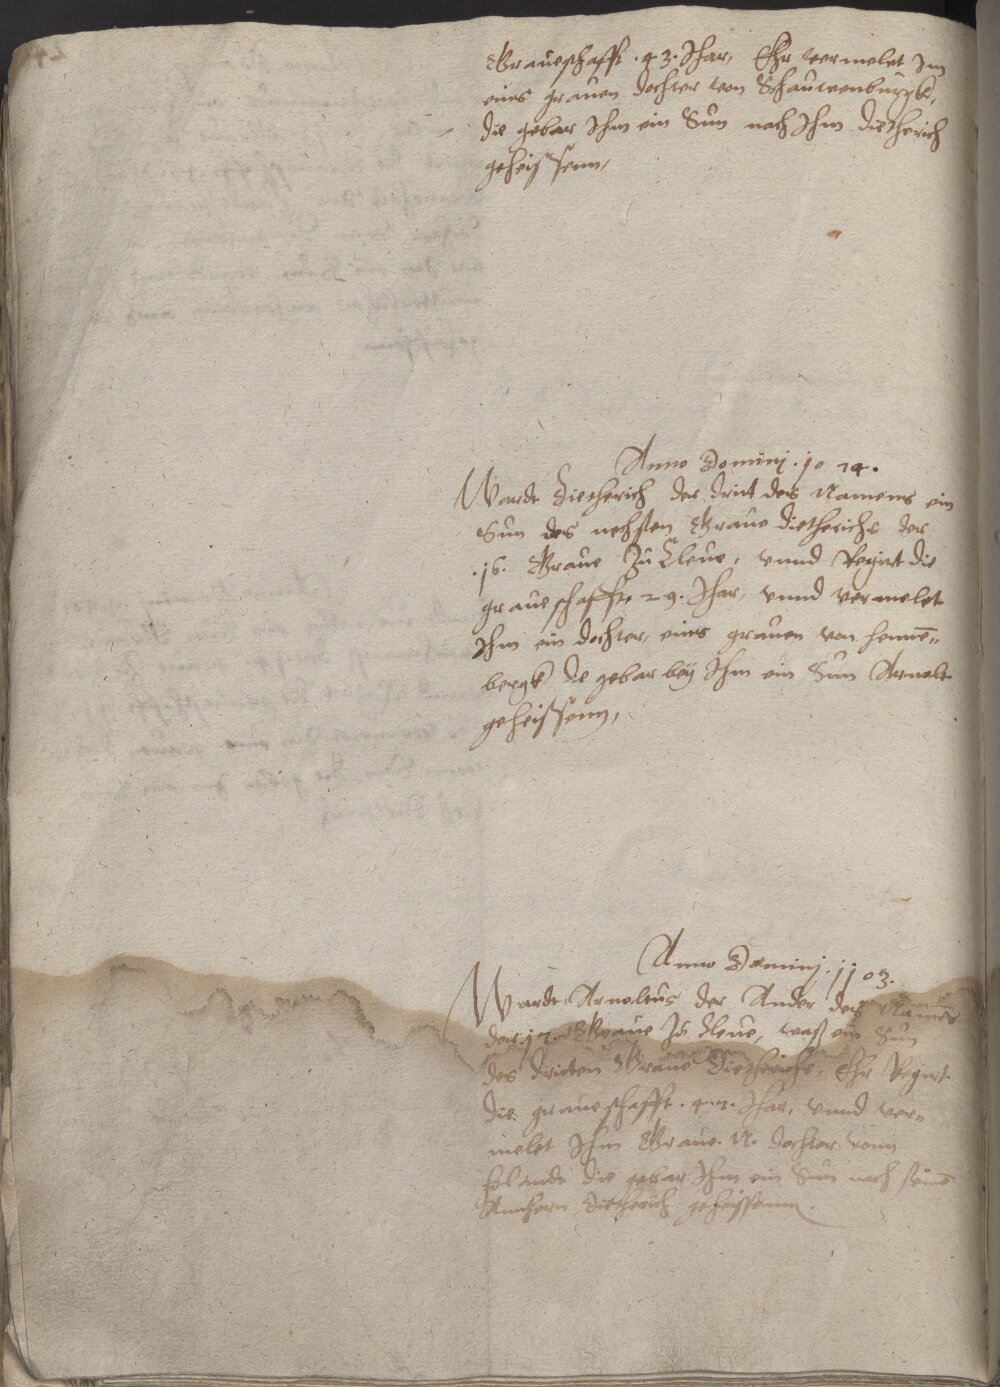 Graueschafft .43. Jhar, Ehr vermelet Im
eines grauen dochter von Schauwenburgk,
die gebar Ihm ein Sun nach Ihm dietherich
geheissenn,
Anno Domini .10 74.
Warde Dietherich der drit des Namens ein
Sun des nechsten Graue dietherichs der
.16. Graue Zu Cleue, vnnd Regirt die
graueschafft 29. Jhar, vnnd vermelet
Ihm ein dochter, eines grauen von henne-
bergk die gebar beÿ Ihm ein Sun Arnolt
geheissenn,
Anno Domini .1103.
Warde Arnoltus der Ander des Names
der .17. Graue Zu Cleue, waß ein Sun
des dritten Graue Dietherichs, Ehr Regirt
die graueschafft .47. Jhar, vnnd ver-
melet Ihm Graue .N. dochter vonn
holandt die gebar Ihm ein Sun nach seine
Anhern Dietherich geheissenn.